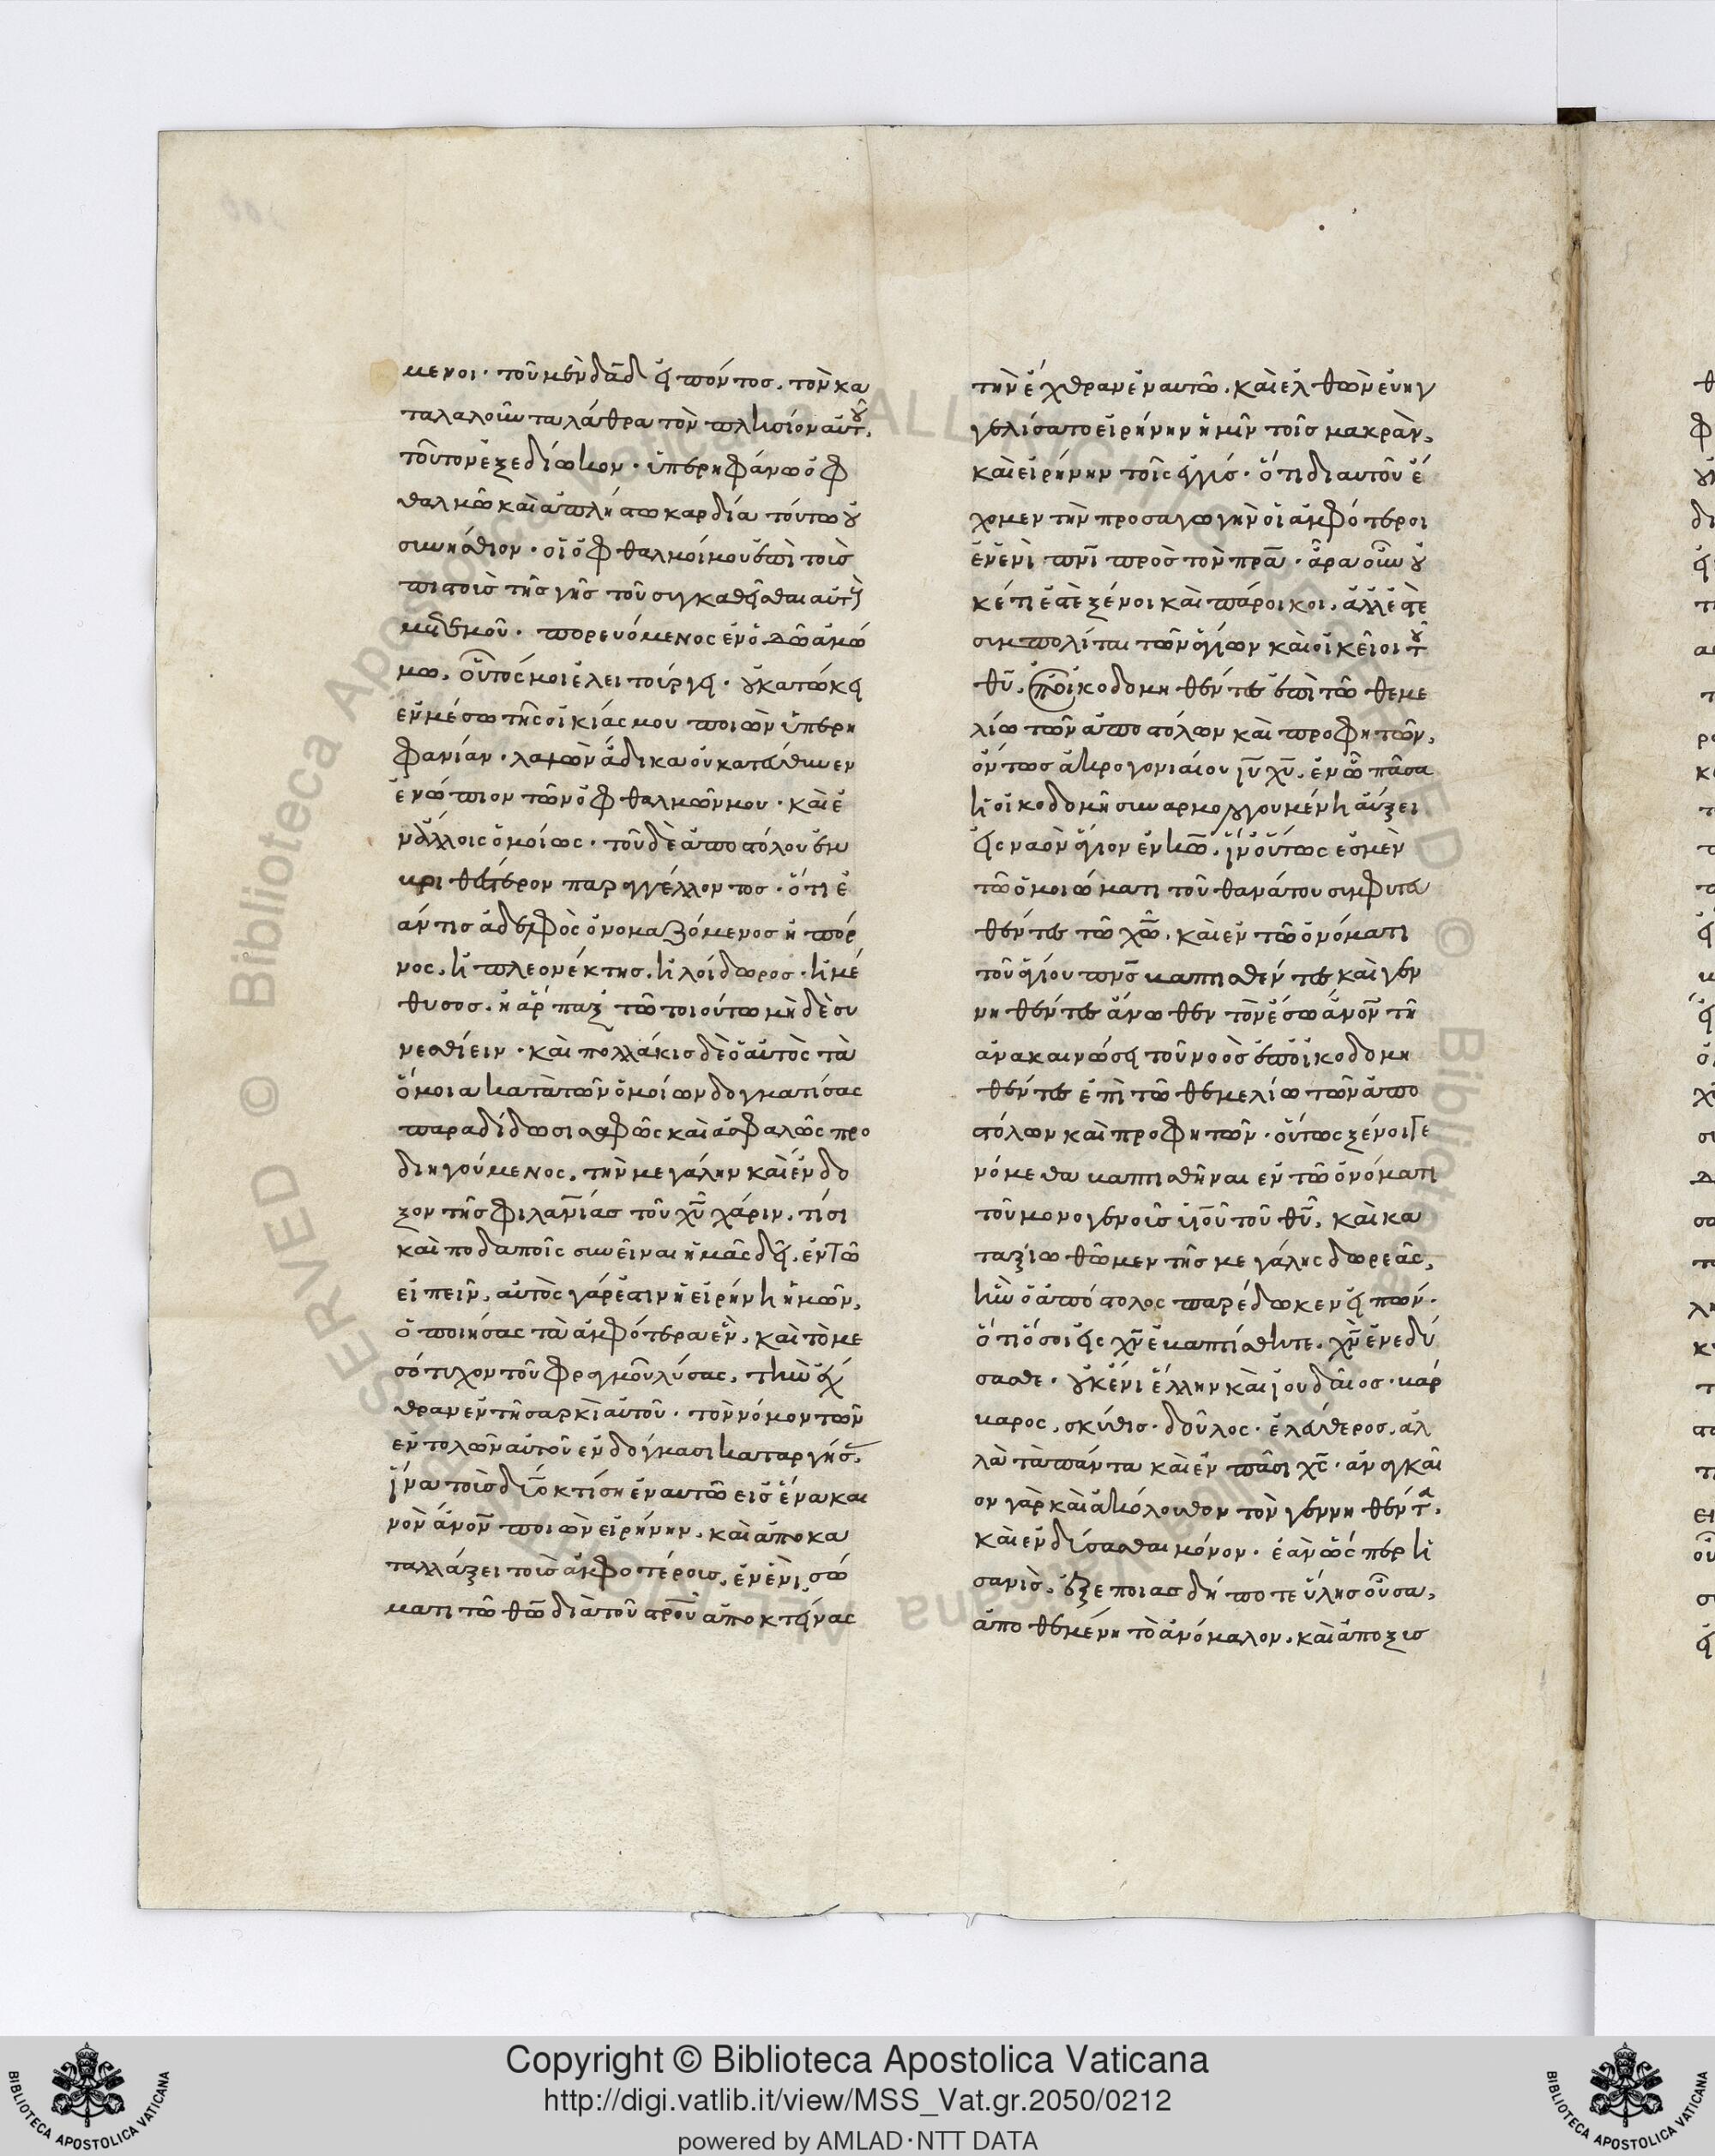 μενοι· τοῦ μὲν δα̅δ εἰπόντος. τὸν κα
ταλαλοῦντα λάθρα τὸν πλησίον αὐτοῦ,
τοῦτον ἐξεδίωκον· ὑπερηφάνω ὀφ
θαλμῶ καὶ ἀπλήστω καρδία τούτω οὐ
συνήσθιον· οἱ ὀφθαλμοί μου ἐπὶ τοὺς
πιστοὺς τῆς γῆς τοῦ συγκαθεῖσθαι αὐτοὺς
μετ ἐμοῦ· πορευόμενος ἐν ὁδῶ ἀμώ
μω, οὗτός μοι ἐλειτούργει· οὐ κατώκει
ἐν μέσω τῆς οἰκίας μου ποιῶν ὑπερη
φανίαν· λαλῶν ἄδικα οὐ κατεύθυνεν
ἐνώπιον τῶν ὀφθαλμῶν μου· καὶ ἐ
ν ἄλλοις ὁμοίως· τοῦ δὲ ἀποστόλου ἐμ
βριθέστερον παραγγέλλοντος· ὅτι ἐ
άν τις ἀδελφὸς ὀνομαζόμενος ἢ πόρ
νος, ἢ πλεονέκτης, ἢ λοίδωρος· ἢ μέ
θυσος, ἢ ἅρπαξ τῶ τοιούτω μὴ δὲ συ
νεσθίειν· καὶ πολλάκις δὲ ὁ αὐτὸς τὰ
ὅμοια κατὰ τῶν ὁμοίων δογματίσας
παραδίδωσι σαφῶς καὶ ἀσφαλῶς προ
διηγούμενος, τὴν μεγάλην καὶ ἔνδο
ξον τῆς φιλαν̅ίας τοῦ χυ̅ χάριν, τίσι
καὶ ποδαποῖς συνεῖναι ἡμᾶς δεῖ, ἐν τῶ
εἰπεῖν, αὐτὸς γάρ ἐστιν ἡ εἰρήνη ἡμῶν,
ὁ ποιήσας τὰ ἀμφότερα ἓν, καὶ τὸ με
σότυχον τοῦ φραγμοῦ λύσας, τὴν ἔχ
θραν ἐν τῆ σαρκὶ αὐτοῦ· τὸν νόμον τῶν
ἐντολῶν αὐτοῦ ἐν δόγμασι καταργήσας,
ἵνα τοὺς δύο κτίση ἐν αυτῶ εἰς ἕνα και
νὸν ἄνο̅ν ποιῶν εἰρήνην, καὶ ἀποκα
ταλλάξει τοὺς ἀμφοτέρους, ἐν ἑνὶ, σώ
ματι τῶ θω̅ διὰ τοῦ στρο̅υ ἀποκτείνας
τὴν ἔχθραν ἐν αυτῶ, καὶ ἐλθὼν εὐηγ
γελίσατο εἰρήνην ἡμῖν τοῖς μακρὰν,
καὶ εἰρήνην τοῖς ἐγγύς· ὅτι δι αυτοῦ ἔ
χομεν τὴν προσαγωγὴν οἱ ἀμφότεροι
ἐν ἑνὶ πνι̅ πρὸς τὸν πρα̅· ἄρα οὖν οὐ
κέτι ἐστὲ ξένοι καὶ πάροικοι, ἀλλ ἐστὲ
συμπολίται τῶν ἁγίων καὶ οἰκεῖοι τοῦ
θυ̅, ἐποικοδομηθέντες ἐπὶ τῶ θεμε
λίω τῶν ἀποστόλων καὶ προφητῶν,
ὄντως ἀκρογονιαίου ιυ̅ χυ̅, ἐν ὧ πᾶσα
ἡ οἰκοδομὴ συναρμολογουμένη αὔξει
εἰς ναὸν ἅγιον ἐν κω̅, ἵν οὕτως ἐσμὲν
τῶ ὁμοιώματι τοῦ θανάτου συμφυτευ
θέντες τῶ χω̅, καὶ ἐν τῶ ὀνόματι
τοῦ ἁγίου πνς̅ βαπτισθέντες καὶ γεν
νηθέντες ἄνωθεν τὸν ἔσω ἄνο̅ν τῆ
ἀνακαινώσει τοῦ νοὸς ἐποικοδομη
θέντες ἐπὶ τῶ θεμελίω τῶν ἀπο
στόλων καὶ προφητῶν· οὕτως ξένοι γε
νόμεθα βαπτισθῆναι ἐν τῶ ὀνόματι
τοῦ μονογενοῦς υἱοῦ τοῦ θυ̅, καὶ κα
ταξιωθῶμεν τῆς μεγάλης δωρεᾶς,
ἣν ὁ ἀπόστολος παρέδωκεν εἰπών·
ὅτι ὅσοι εἰς χν̅ ἐβαπτίσθητε, χν̅ ἐνεδύ
σασθε· οὐκ ἔνι ἕλλην καὶ ἰουδαῖος· βάρ
βαρος, σκύθις· δοῦλος· ἐλεύθερος, ἀλ
λὰ τὰ πάντα καὶ ἐν πᾶσι χς̅· ἀναγκαῖ
ον γὰρ καὶ ἀκόλουθον τὸν γεννηθέντα,
καὶ ἐνδύσασθαι μόνον· ἐὰν ὥς περ ἡ
σανὶς, ἐξ ποιας δή ποτε ὕλης οὖσα,
ἀποθεμένη τὸ ἀνόμαλον, καὶ ἀποξυσ
Copyright © Biblioteca Apostolica Vaticana
http://digi.vatlib.it/view/MSS_Vat.gr.2050/0212
powered by AMLAD·NTT DATA